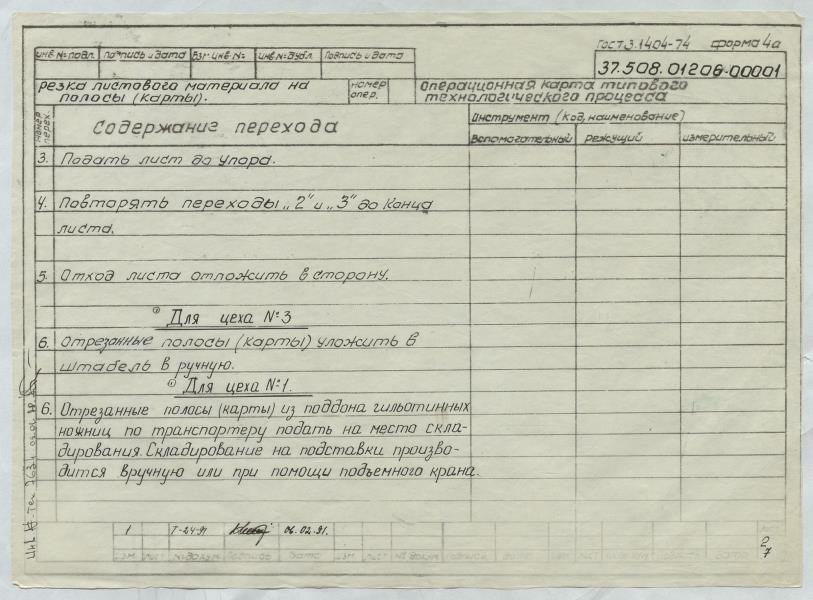 ГОСТ 3.1404-74 форма 4а
инв.№подл. подпись и дата Взг.инв.№ инв.№дубл. Подпись и дата
37.508.01206.00001
резка листового материала на
полосы (карты).
номер
опер.
Операционная карта типового
технологического процесса
номер
перех.
Содержание перехода
Инструмент (код, наименование)
вспомогательный режущий измерительный
3. Подать лист до упора.
4. Повторять переходы „2" и „3" до конца
листа.
5. Отход листа отложить в сторону.
① Для цеха №3
6. Отрезанные полосы (карты) уложить в
штабель в ручную.
① Для цеха №1.
6. Отрезанные полосы (карты) из поддона гильотинных
ножниц по транспортеру подать на место скла-
дирования. Складирование на подставки произво-
дится вручную или при помощи подъемного крана.
1 Т-24-91 06.02.91.
изм лист №докум подпись дата изм лист №докум подпись дата изм лист №докум подпись дата
2
7